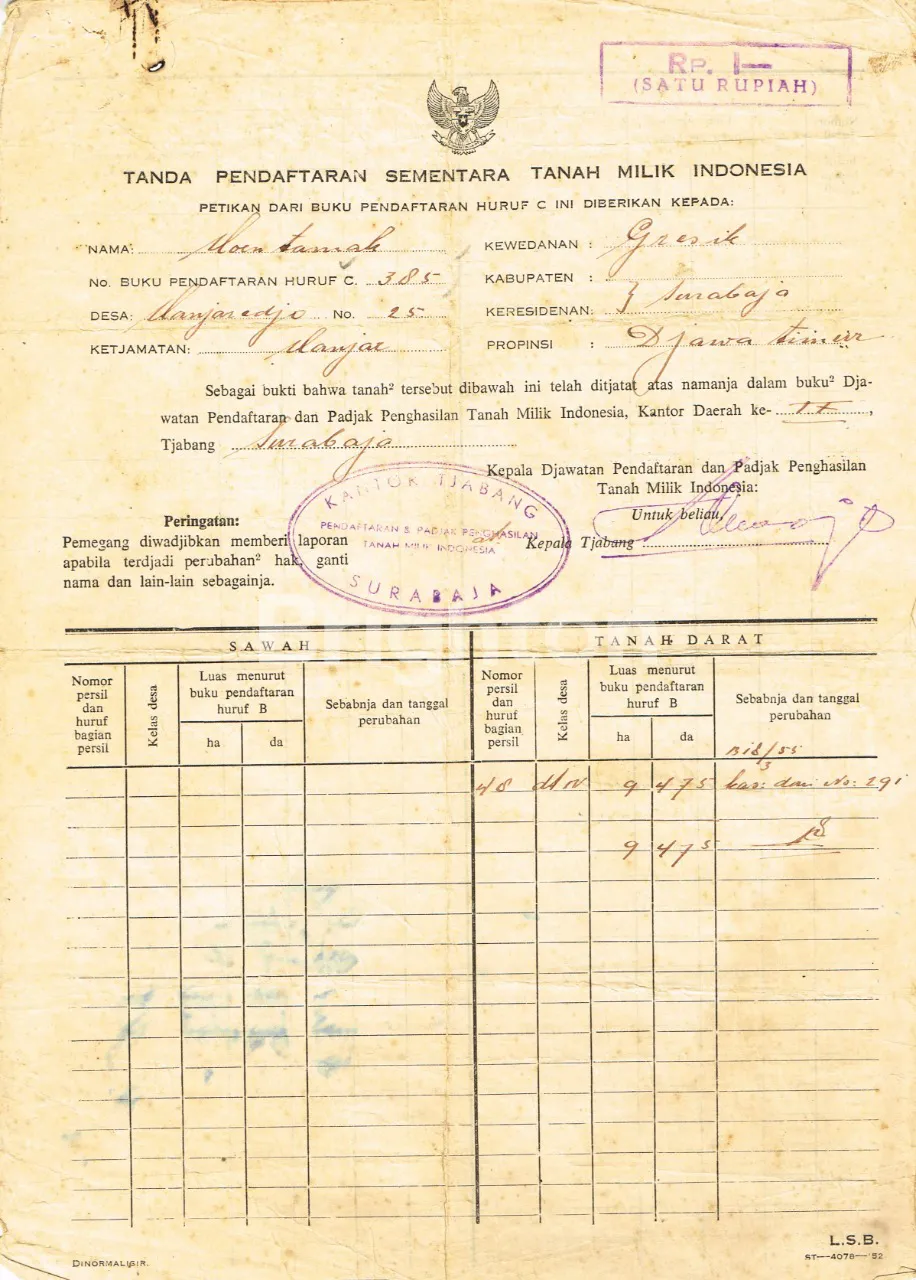 Rp. 1—
(SATU RUPIAH)
TANDA PENDAFTARAN SEMENTARA TANAH MILIK INDONESIA
PETIKAN DARI BUKU PENDAFTARAN HURUF C INI DIBERIKAN KEPADA:
NAMA:
KEWEDANAN : Gresik
No. BUKU PENDAFTARAN HURUF C. 385
KABUPATEN :
DESA: No. 25
KERESIDENAN: Surabaja
KETJAMATAN:
PROPINSI : Djawa timur
Sebagai bukti bahwa tanah² tersebut dibawah ini telah ditjatat atas namanja dalam buku² Dja-
watan Pendaftaran dan Padjak Penghasilan Tanah Milik Indonesia, Kantor Daerah ke- ,
Tjabang Surabaja
Kepala Djawatan Pendaftaran dan Padjak Penghasilan
Tanah Milik Indonesia:
Untuk beliau,
Kepala Tjabang
KANTOR TJABANG
PENDAFTARAN & PADJAK PENGHASILAN
TANAH MILIK INDONESIA
SURABAJA
Peringatan:
Pemegang diwadjibkan memberi laporan
apabila terdjadi perubahan² hak, ganti
nama dan lain-lain sebagainja.
SAWAH
TANAH DARAT
Nomor persil dan huruf bagian persil
Kelas desa
Luas menurut buku pendaftaran huruf B
ha
da
Sebabnja dan tanggal perubahan
Nomor persil dan huruf bagian persil
Kelas desa
Luas menurut buku pendaftaran huruf B
ha
da
Sebabnja dan tanggal perubahan
48 9 475 No: 291
9 475
DINORMALISIR.
L.S.B.
ST—4078—'52